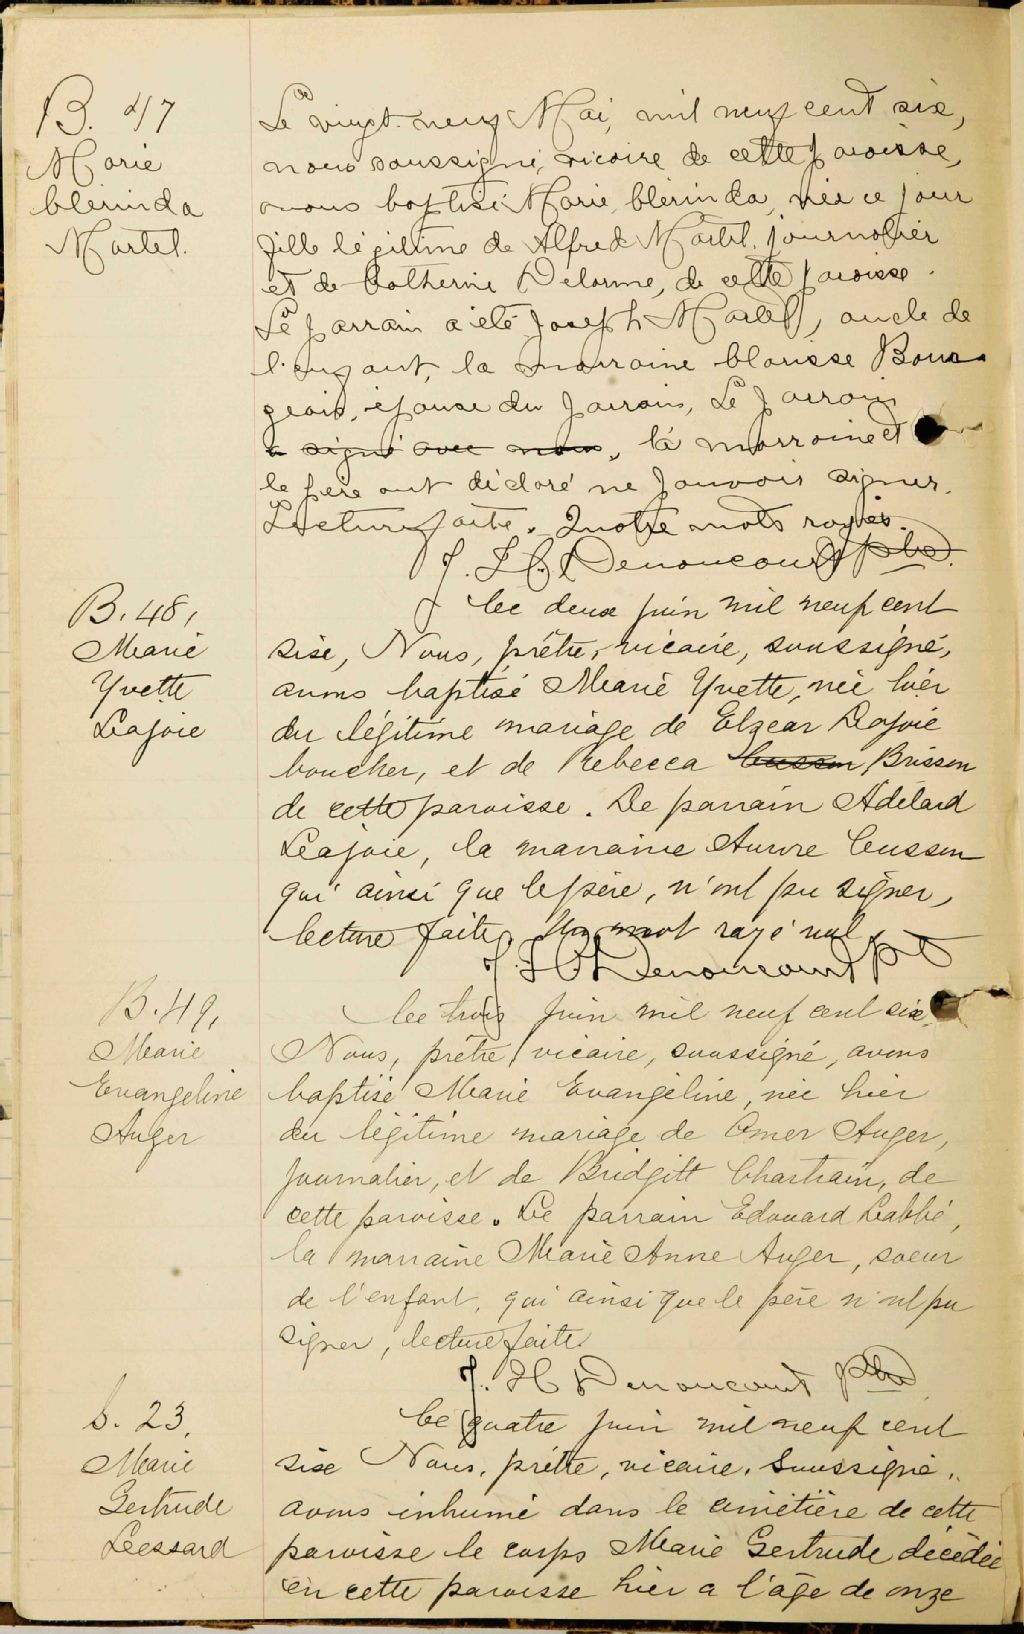 B. 47
Marie
Clérinda
Martel.
Le vingt-neuf Mai, mil neuf cent six,
nous soussigné, vicaire de cette paroisse,
avons baptisé Marie, Clérinda, née ce jour
fille légitime de Alfred Martel, journalier
et de Catherine Delorme, de cette paroisse.
Le parrain a été Joseph Martel, oncle de
l'enfant, la marraine Clarisse Bour-
geois, épouse du parrain, Le parrain
a signé avec nous, la marraine et
le père ont déclaré ne pouvoir signer.
Lecture faite. Quatre mots rayés.
J. H. Denoncourt Ptre.
B. 48,
Marie
Yvette
Lajoie
Ce deux juin mil neuf cent
six, Nous, prêtre, vicaire, soussigné,
avons baptisé Marie Yvette, née hier
du légitime mariage de Elzear Lajoie
boucher, et de Rebecca Cusson Brisson
de cette paroisse. Le parrain Adélard
Lajoie, la marraine Aurore Cusson
qui ainsi que le père, n'ont pu signer,
lecture faite. Un mot rayé nul.
J. H. Denoncourt pt
B. 49,
Marie
Evangeline
Auger
Ce trois juin mil neuf cent six
Nous, prêtre, vicaire, soussigné, avons
baptisé Marie Evangéline, née hier
du légitime mariage de Omer Auger,
journalier, et de Bridgitt Chartrain, de
cette paroisse. Le parrain Edouard Labbé,
la marraine Marie Anne Auger, soeur
de l'enfant, qui ainsi que le père n'ont pu
signer, lecture faite.
J. H. Denoncourt Ptre
S. 23,
Marie
Gertrude
Lessard
Ce quatre juin mil neuf cent
six Nous, prêtre, vicaire, Soussigné,
avons inhumé dans le cimétière de cette
paroisse le corps Marie Gertrude décédée
en cette paroisse hier a l'âge de onze